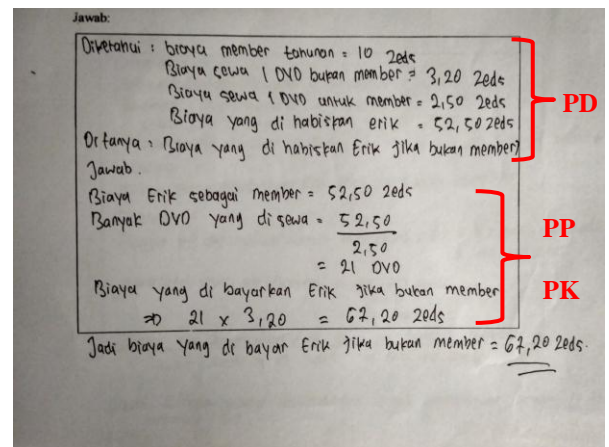 Jawab:
Diketahui : biaya member tahunan = 10 Zeds
Biaya sewa 1 DVD bukan member = 3,20 Zeds
Biaya sewa 1 DVD untuk member = 2,50 Zeds
Biaya yang di habiskan erik = 52,50 Zeds
PD
Ditanya : Biaya yang di habiskan Erik jika bukan member?
Jawab.
Biaya Erik sebagai member = 52,50 Zeds
Banyak DVD yang di sewa = 52,50
2,50
= 21 DVD
PP
Biaya yang di bayarkan Erik jika bukan member
PK
⇒ 21 x 3,20 = 67,20 Zeds
Jadi biaya yang di bayar Erik jika bukan member = 67,20 Zeds.